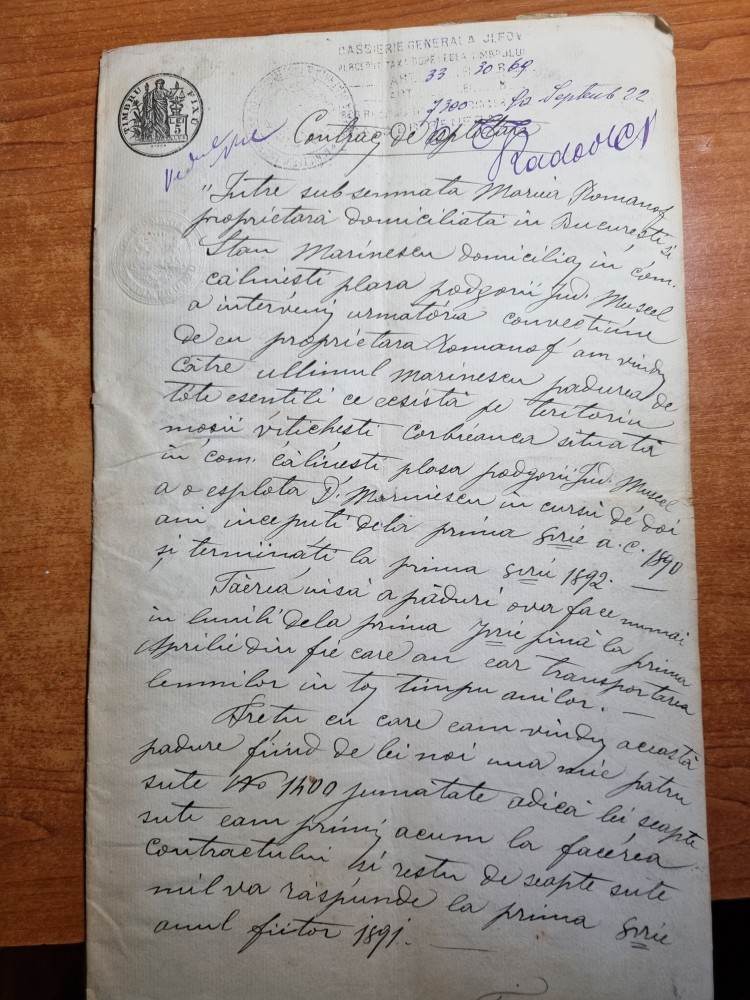 CASSIERIE GENERALA ILFOV
33 30 869
7300 Septemb 22
TIMBRU FIX
5
LEI
Contrac de esplotare
Radovici
"Între subsemnata Maria Romanof
propriétara domiciliata in Bucuresti si
Stan Marinescu domiciliaț in com.
Călinesti plasa podgorii Jud. Muscel
a interveniț urmatória convectiune
de eu propriétara Romanof am vînduț
Către ultimul Marinescu padurea de
tóte esentili ce ecsistă pe teritoriu
mosii Vitichesti Corbréanca situată
în com. Călinesti plasa podgorii Jud. Muscel
a o esplota D. Marinescu în cursu de doi
ani inceputi dela prima Ghrie a. c. 1890
și terminati la prima Ghrie 1892. —
Tăerea însă a păduri o va face numai
in lunili dela prima Ghrie pînă la prima
Aprilie din fie care an ear transportarea
lemnilor in toț timpu anilor. —
Pretu cu care eam vînduț această
padure fiind de lei noi una mie patru
sute No 1400 jumatate adică lei seapte
sute eam primiț acum la facérea
contractului și restu de seapte sute
mil va răspunde la prima Ghrie
anul fiitor 1891. —